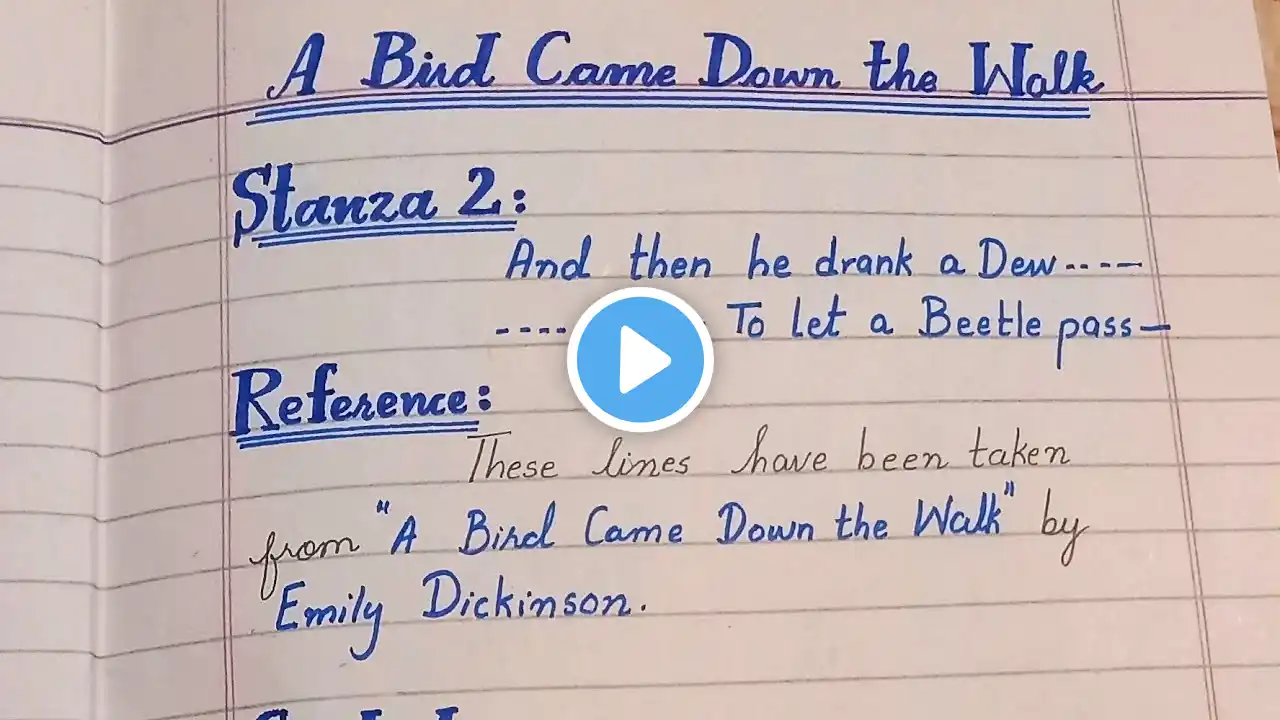 A Bird Came Down the Walk
Stanza 2:
And then he drank a Dew----
---- To let a Beetle pass—
Reference:
These lines have been taken
from "A Bird Came Down the Walk" by
Emily Dickinson.